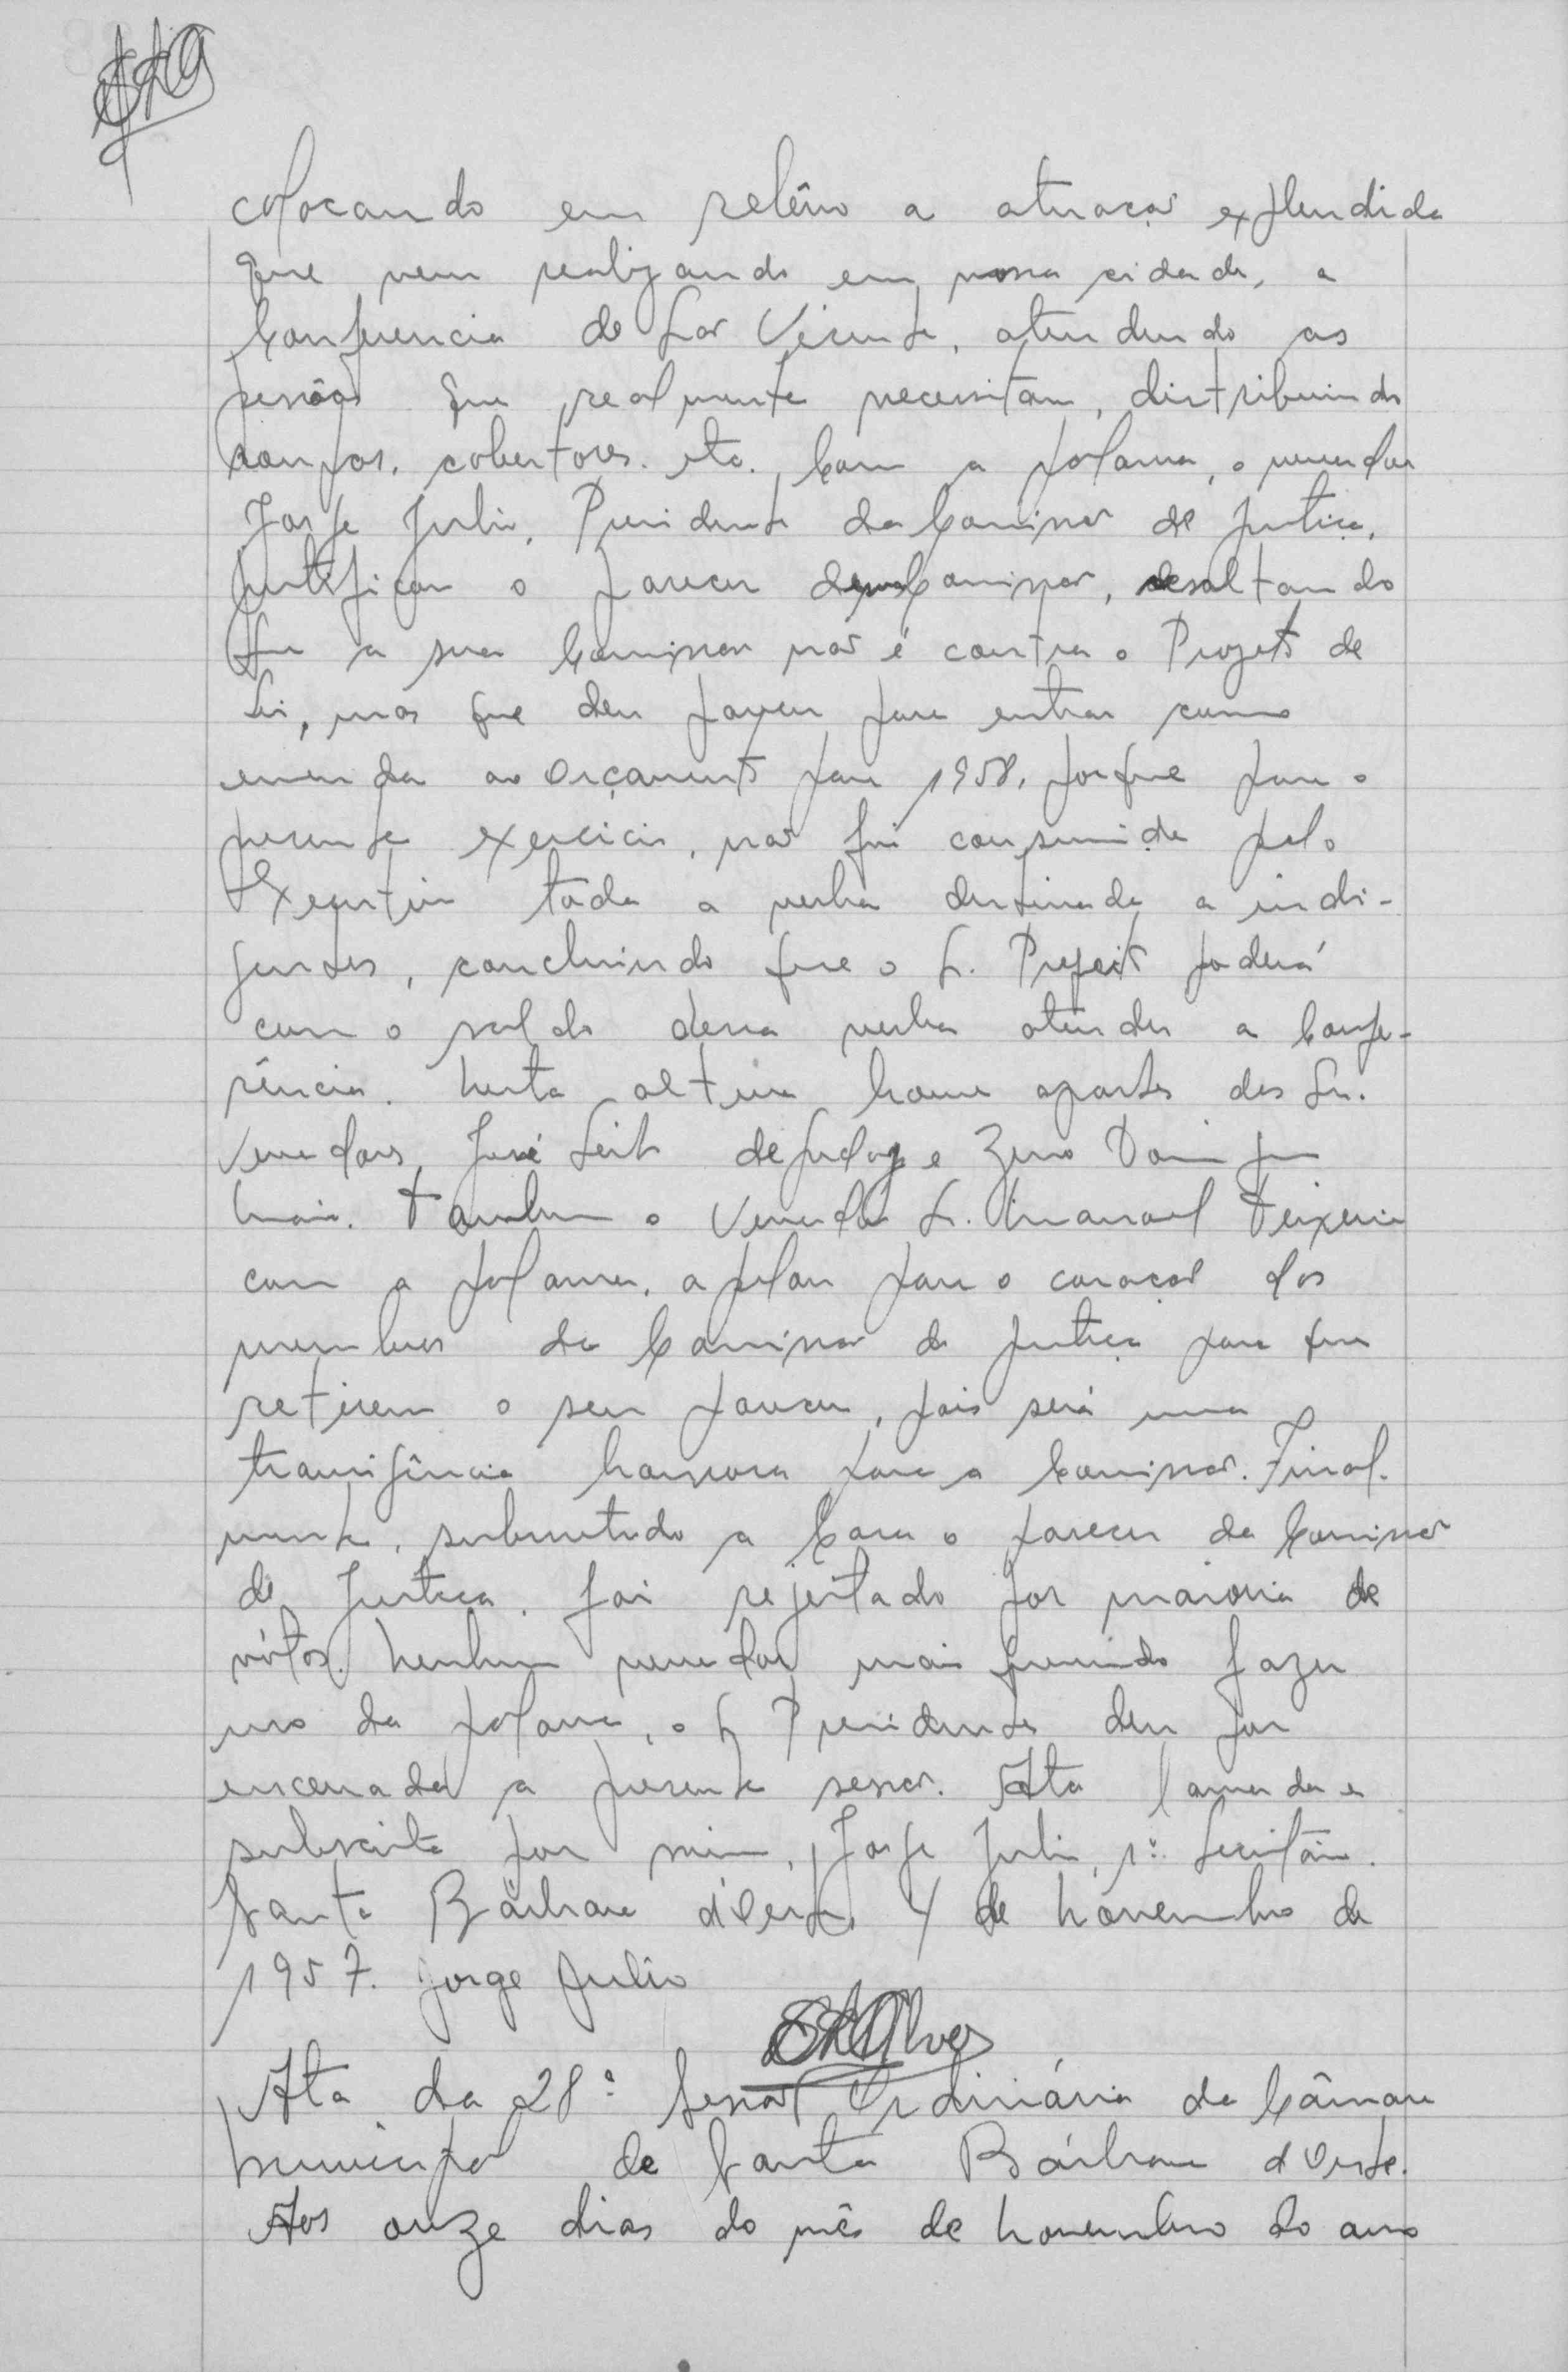 colocando em relêvo a atuação explendida
que vem realizando em nossa cidade, a
Conferencia de São Vicente, atendendo as
pessôas que realmente necessitam, distribuindo
roupas, cobertores. etc. Com a palavra, o vereador
Jorge Julio, Presidente da Comissão de Justiça,
justificou o parecer dessa Comissão, resaltando
que a sua Comissão não é contra o Projeto de
Lei, mas que deu parecer para entrar como
emenda ao Orçamento para 1958, porque para o
presente exercicio, não foi consumida pelo
Executivo toda a verba destinada a indi-
gentes, concluindo que o Sr. Prefeito poderá
com o saldo dessa verba atender a Confe-
rência. Nesta altura houve apartes dos Srs.
Vereadores, José Leite de Godoy e Zeno
Maia. Tambem o Vereador Sr. Manoel Teixeira
com a palavra, apelou para o coração dos
membros da Comissão de Justiça para que
retirem o seu parecer, pois será uma
transigência honrosa para a Comissão. Final-
mente, submetido a Casa o parecer da Comissão
de Justiça, foi rejeitado por maioria de
vótos. Nenhum vereador mais querendo fazer
uso da palavra, o Sr Presidente deu por
encerrada a presente sessão. Ata lavrada e
subscrita por mim, Jorge Julio, 1º Secretário.
Santa Bárbara d'Oeste, 4 de Novembro de
1957. Jorge Julio
Alves
Ata da 28ª Sessão Ordinária da Câmara
Municipal de Santa Bárbara d'Oeste.
Aos onze dias do mês de Novembro do ano